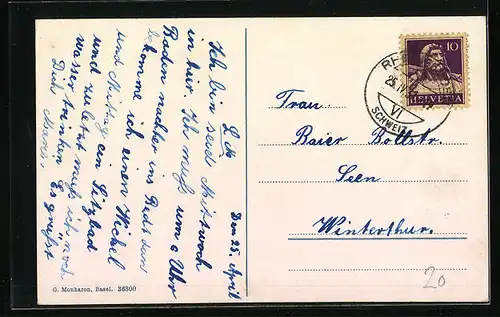 Den 25. April
L. Ida
Ich bin seid Mittwoch
in hier. Ich muß um 6 Uhr
Baden nachher ins Bett dann
bekomme ich einen Wickel
und Mittag ein Sitzbad
und zuletzt muß ich noch
wasser trinken Es grüßt
Dich
G. Monbaron, Basel. 36300
10
HELVETIA
25. IV.
VI
SCHWEIZ
Frau
Baier Bollstr.
Seen
Winterthur.
20